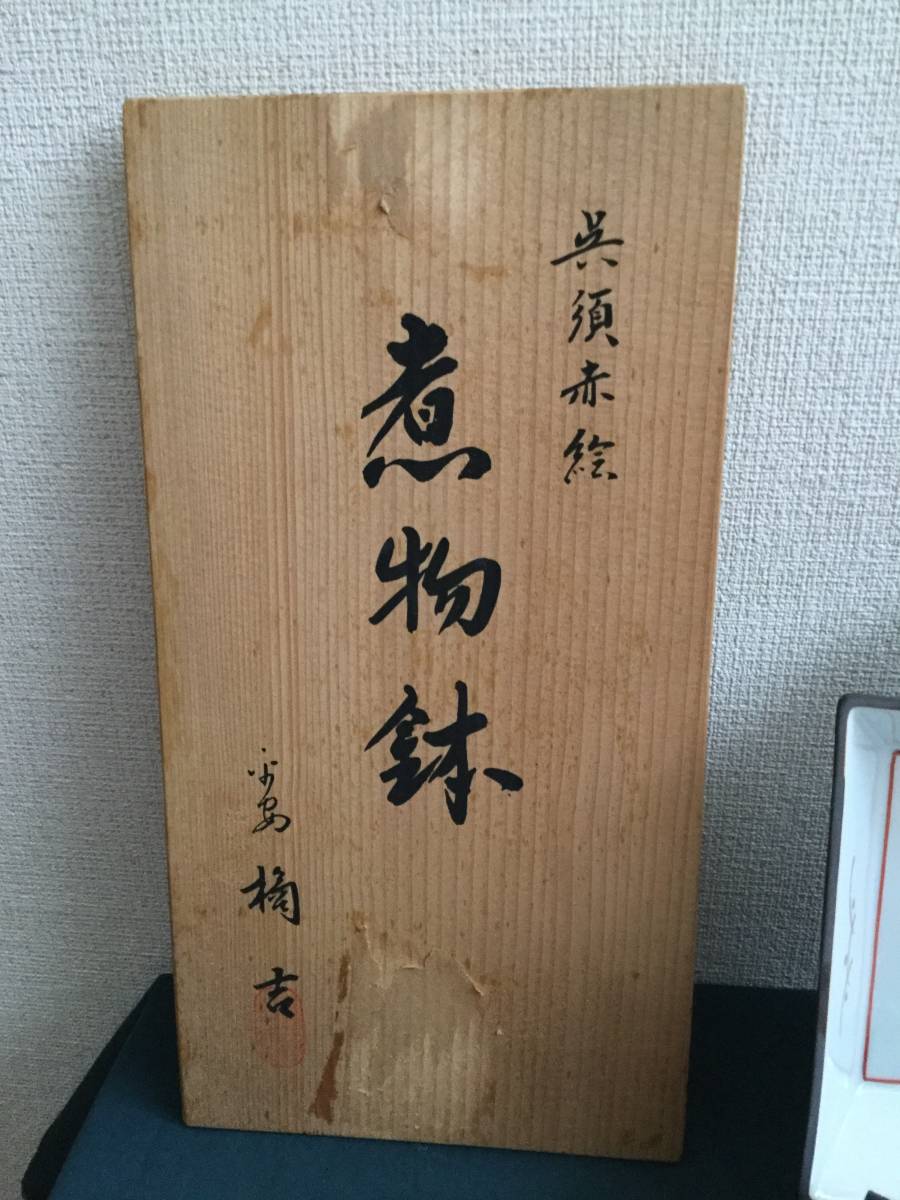 呉須赤絵
煮物鉢
平安 橘吉